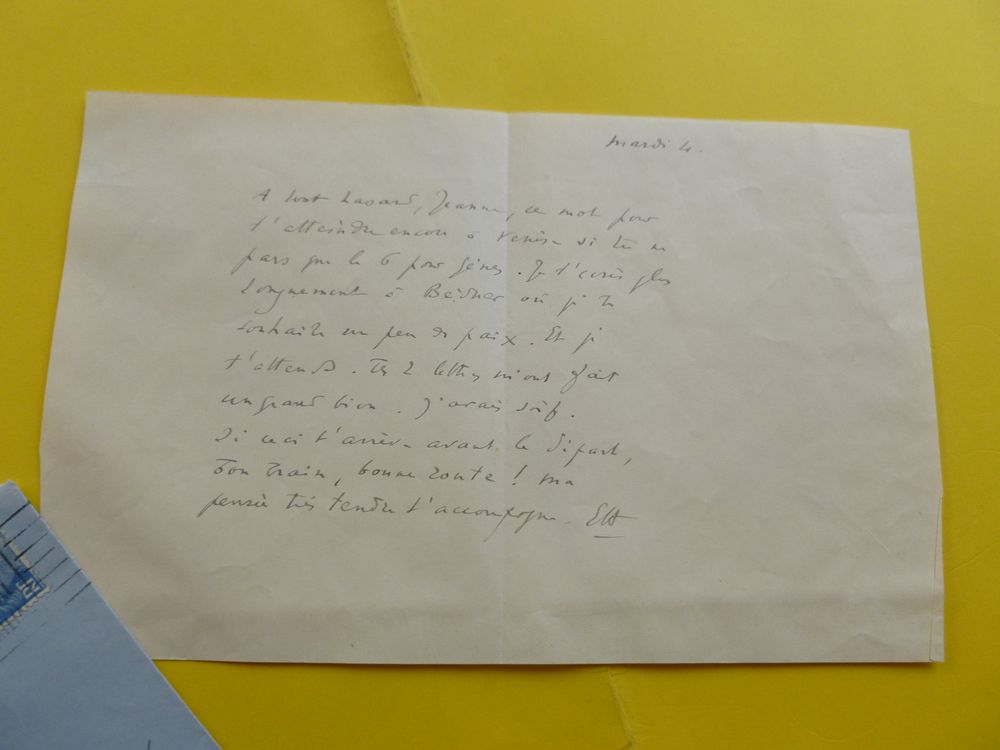 mardi 4.
A tout hasard, Jeanne, ce mot pour
t'atteindre encore à Venise si tu ne
pars que le 6 pour Gênes. Je t'écris plus
longuement à où je te
souhaite un peu de paix. Et je
t'attends. Tes 2 lettres m'ont fait
un grand bien. J'avais soif.
Si ceci t'arrive avant le départ,
bon train, bonne route ! ma
pensée très tendre t'accompagne.
RF